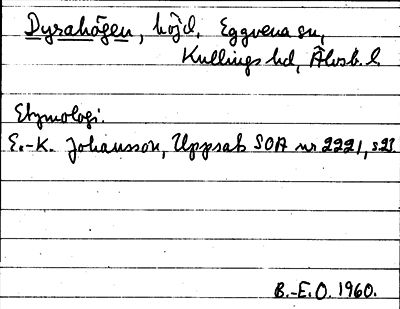 Dyrahögen, höjd, Eggvena sn,
Kullings hd, Älvsb. l
Etymologi.
E.-K. Johansson, Uppsats SOA nr 2221, s.23.
B.-E.O. 1960.